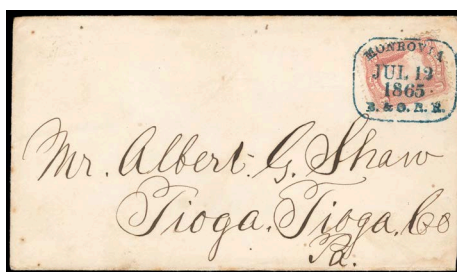 MONROVIA
JUL 12
1865
B. & O. R. R.
Mr. Albert G. Shaw
Tioga, Tioga, Co
Pa.